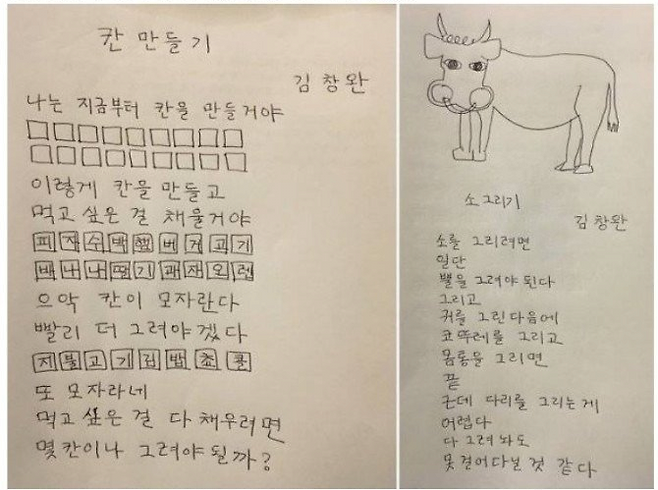 칸 만들기
김창완
나는 지금부터 칸을 만들거야
이렇게 칸을 만들고
먹고 싶은 걸 채울거야
피자수박햄버거고기
바나나딸기과자오렌
으악 칸이 모자란다
빨리 더 그려야겠다
지불고기김밥초콜
또 모자라네
먹고 싶은 걸 다 채우려면
몇 칸이나 그려야 될까?
소 그리기
김창완
소를 그리려면
일단
뿔을 그려야 된다
그리고
귀를 그린 다음에
코뚜레를 그리고
몸통을 그리면
끝
근데 다리를 그리는 게
어렵다
다 그려 놔도
못 걸어다닐 것 같다